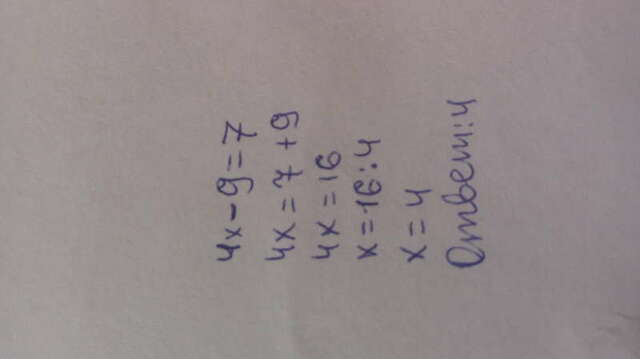 4x-9=7
4x=7+9
4x=16
x=16:4
x=4
Ответ:4